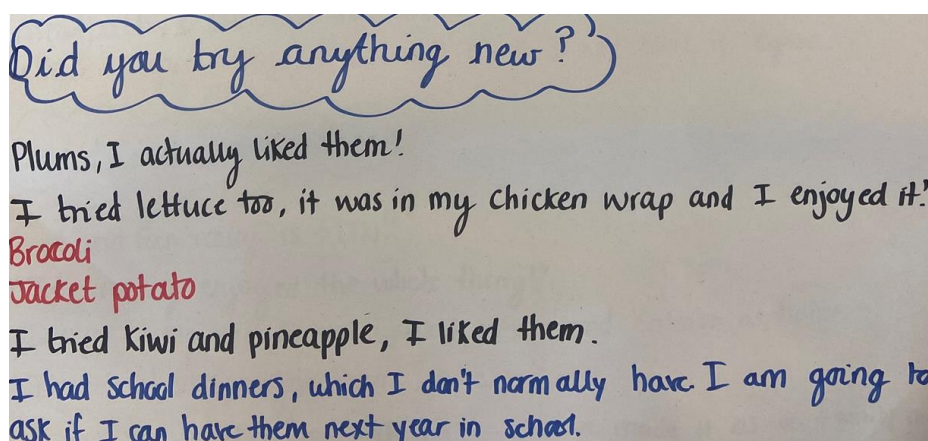 Did you try anything new?
Plums, I actually liked them!
I tried lettuce too, it was in my chicken wrap and I enjoyed it!
Brocoli
Jacket potato
I tried kiwi and pineapple, I liked them.
I had school dinners, which I don't normally have. I am going to
ask if I can have them next year in school.